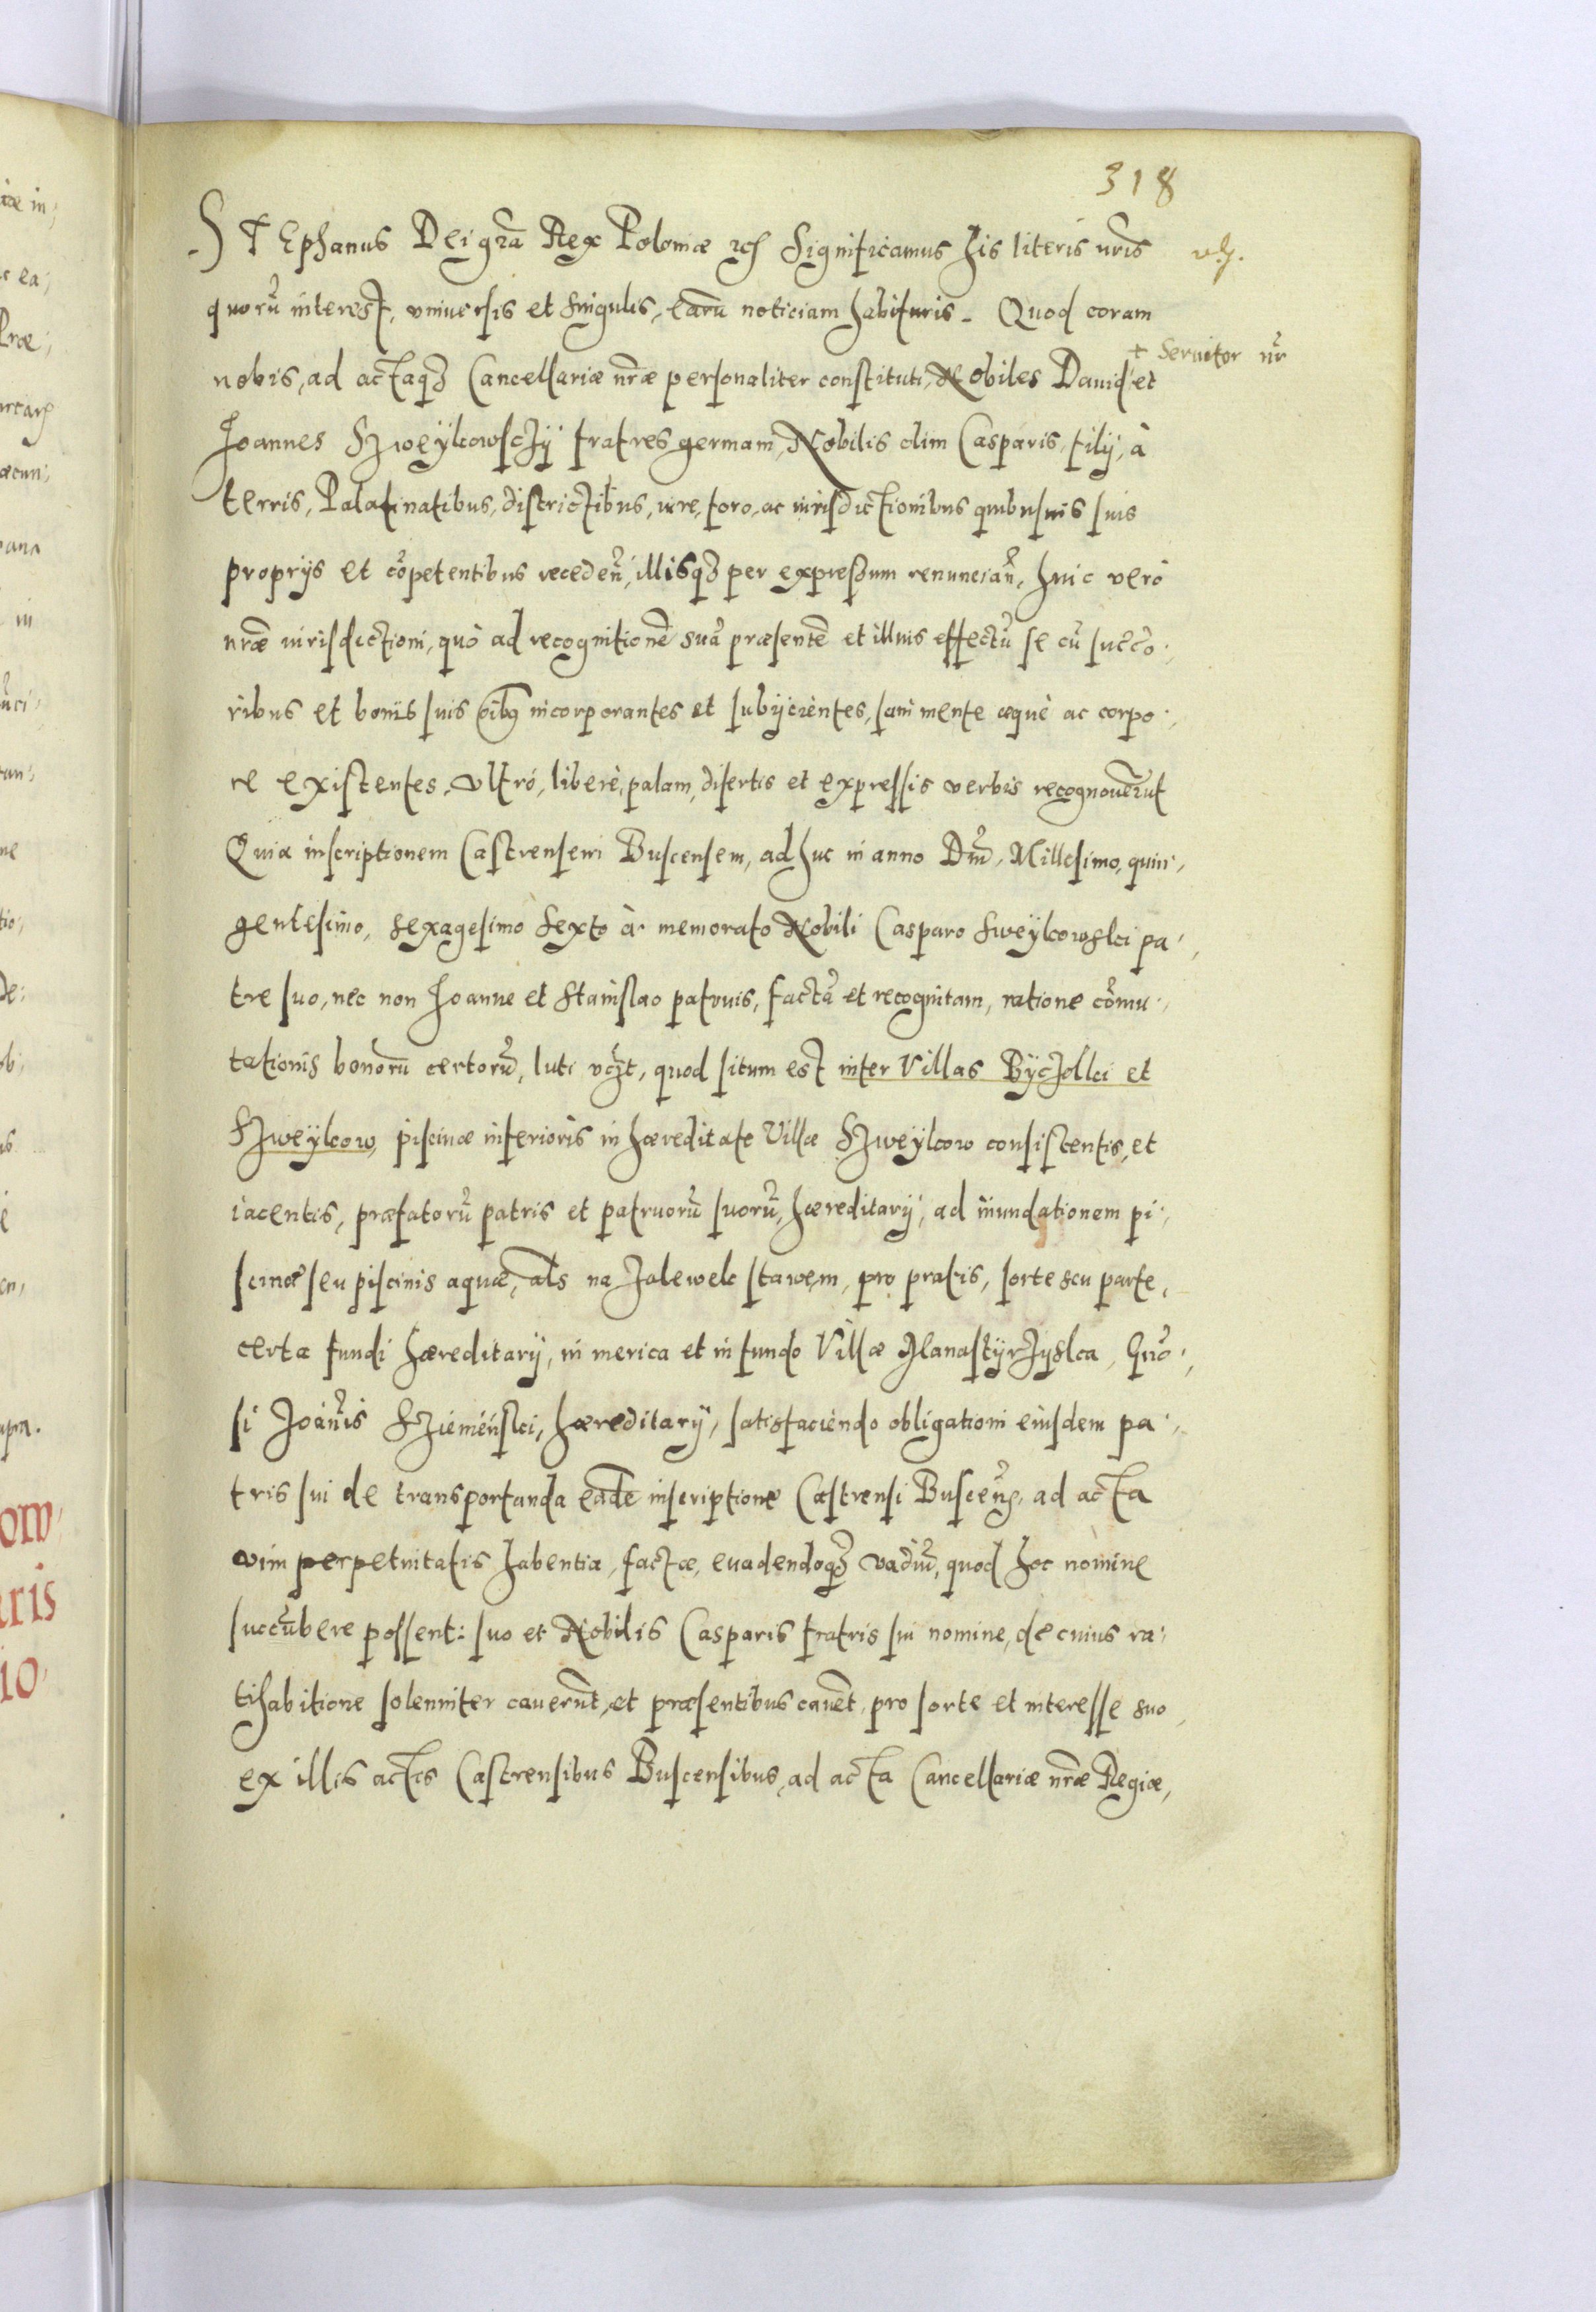 318
STEphanus Dei gr̃a Rex Poloniæ ꝛcꝭ Significamus his literis nr̃is
quorũ interest, vniuersis et singulis, earũ noticiam habituris. Quod coram
+ Seruitor nr̃
nobis, ad actaqꝫ Cancellariæ nr̃æ personaliter constituti, Nobiles Dauid et
Joannes Szweÿkowsczÿ fratres germani, Nobilis olim Casparis, filij, à
terris, Palatinatibus, districtibus, iure, foro, ac iurisdictionibus quibusuis suis
proprijs et cõpetentibus receden̄, illisqꝫ per expressum renuncian̄, huic verò
nr̃æ iurisdictioni, quò ad recognitionẽ suã præsentẽ et illius effectũ se cũ succo-
ribus et bonis suis oĩbꝰ incorporantes et subijcientes, sani mente æquè ac corpo-
re existentes, vltró, liberè, palam, disertis et expressis verbis recognouerũt
Quia inscriptionem Castrensem Buscensem, adhuc in anno Dñi, Millesimo, quin-
gentesimo, sexagesimo sexto à memorato Nobili Casparo Sweÿkowski pa-
tre suo, nec non Joanne et Stanislao patruis, factã et recognitam, ratione cõmu-
tationis bonorũ certorũ, luti vcꝫt, quod situm est inter Villas Bÿczolki et
Szweÿkow, piscinæ inferioris in hæreditate Villæ Szweÿkow consistentis, et
iacentis, præfatorũ patris et patruorũ suorũ, hæreditarij, ad inundationem pi-
scinæ seu piscinis aquæ, als na zalewek stawem, pro pratis, sorte seu parte,
certa fundi hæreditarij, in merica et in fundo Villæ Manastÿrzÿska, Gño-
si Joãnis Sziemieński, hæreditarij, satisfaciendo obligationi eiusdem pa-
tris sui de transportanda eadẽ inscriptione Castrensi Buscenꝭ, ad acta
vim perpetuitatis habentia, factæ, euadendoqꝫ vadiũ, quod hoc nomine
succũbere possent: suo et Nobilis Casparis fratris sui nomine, de cuius ra-
tihabitione solenniter cauerũt, et præsentibus cauẽt, pro sorte et interesse suo,
ex illis actis Castrensibus Buscensibus, ad acta Cancellariæ nr̃æ Regiæ,